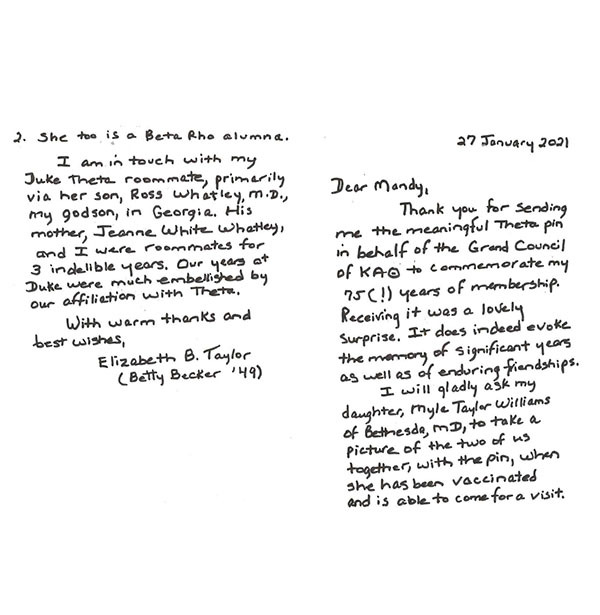 27 January 2021
Dear Mandy,
Thank you for sending
me the meaningful Theta pin
in behalf of the Grand Council
of KAΘ to commemorate my
75(!) years of membership.
Receiving it was a lovely
surprise. It does indeed evoke
the memory of significant years
as well as of enduring friendships.
I will gladly ask my
daughter, Myle Taylor Williams
of Bethesda, MD, to take a
picture of the two of us
together, with the pin, when
she has been vaccinated
and is able to come for a visit.
2. She too is a Beta Rho alumna.
I am in touch with my
Duke Theta roommate, primarily
via her son, Ross Whatley, M.D.,
my godson, in Georgia. His
mother, Jeanne White Whatley,
and I were roommates for
3 indelible years. Our years at
Duke were much embellished by
our affiliation with Theta.
With warm thanks and
best wishes,
Elizabeth B. Taylor
(Betty Becker '49)